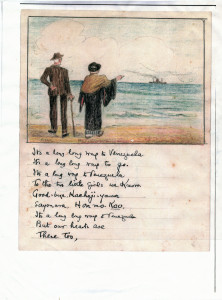 It's a long long way to Venezuela
It's a long long way to go.
It's a long way to Venezuela
To the two little girls we know
Good-bye
Sayonara
It's a long long way to Venezuela
But our hearts are
There too,